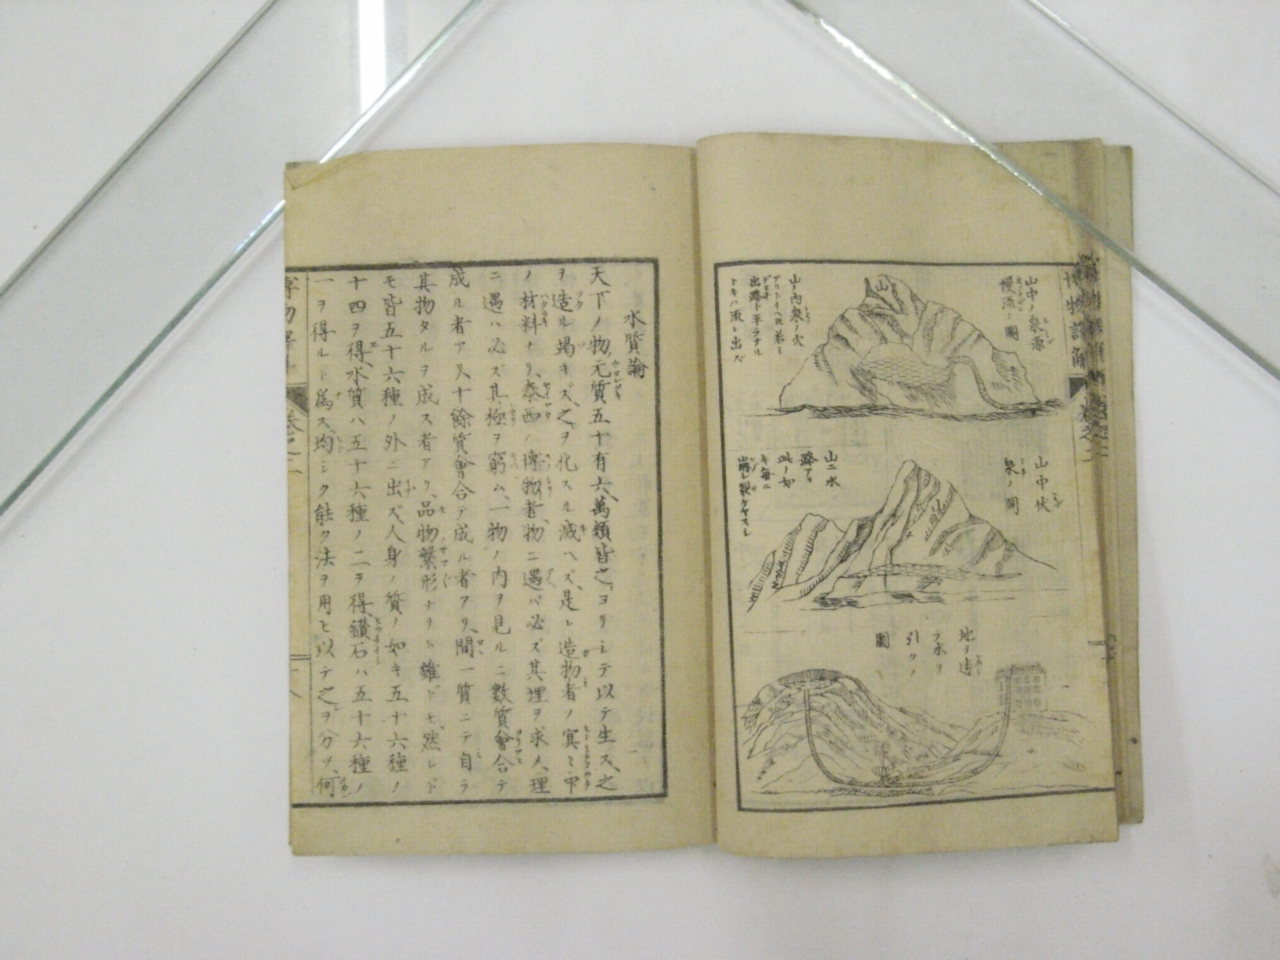 山中ノ泉源
慢流ノ圖
山
山ノ内泉ノ穴
出路ト平ラナル
トキハ流レ出ズ
山中伏
泉ノ圖
山ニ水
路アリ
此ノ如
キ毎ニ
崩レ裂ケヤスシ
水ヲ
引クノ
圖
水質論
天下ノ物元質五十有六萬類皆之ヨリシテ以テ生ス之
ヲ造ル竭キズ之ヲ化スル滅ヘズ是レ造物者ノ冥々中
ノ材料ナリ泰西ノ博物者物ニ遇ハバ必ズ其理ヲ求ム理
ニ遇ハ必ズ其極ヲ窮ム一物ノ内ヲ見ルニ數質會合テ
成ル者アリ十餘質會合テ成ル者アリ間一質ニテ自ラ
其物タルヲ成ス者アリ品物繁形ナリト雖ドモ然レド
モ皆五十六種ノ外ニ出ズ人身ノ質ノ如キ五十六種ノ
十四ヲ得水質ハ五十六種ノ二ヲ得鑽石ハ五十六種ノ
一ヲ得ルト爲ス均シク能ク法ヲ用ヒ以テ之ヲ分ツ何